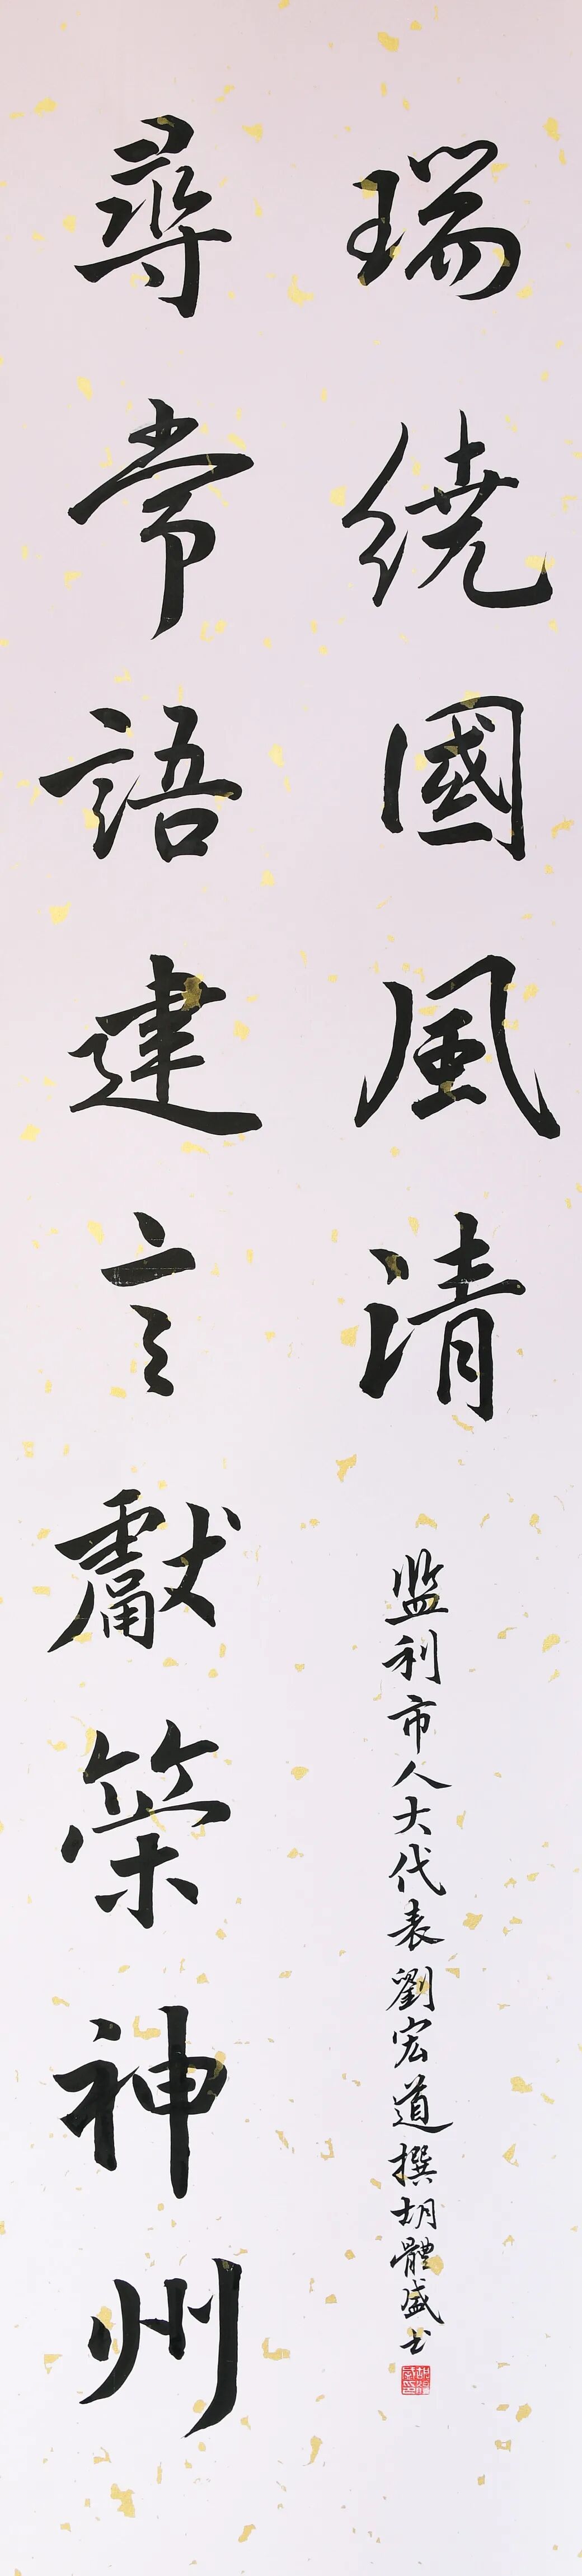 尋常語建言獻策神州
瑞繞國風清
监利市人大代表劉宏道撰胡體盛书